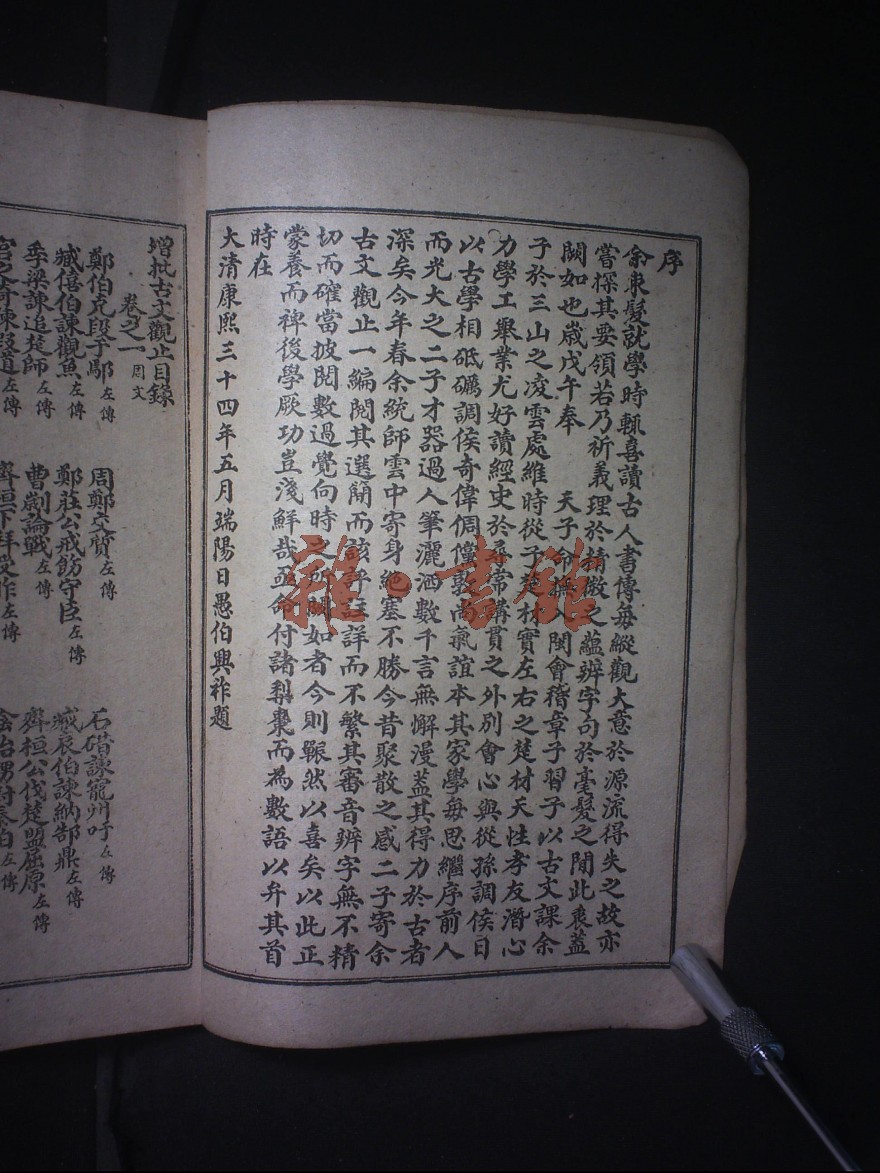 序
余束髮就學時輒喜讀古人書傳每縱觀大意於源流得失之故亦
嘗探其要領若乃析義理於精微之蘊辨字句於毫髮之間此衷蓋
闕如也歲戊午奉　天子命撫八閩會稽章子習子以古文課余
子於三山之凌雲處維時從子楚材實左右之楚材天性孝友潛心
力學工舉業尤好讀經史於尋常講貫之外別會心與從孫調侯日
以古學相砥礪調侯奇偉倜儻敦尚氣誼本其家學每思繼序前人
而光大之二子才器過人筆灑洒數千言無懈漫蓋其得力於古者
深矣今年春余統師雲中寄身絕塞不勝今昔聚散之感二子寄余
古文觀止一編閱其選簡而該評註詳而不繁其審音辨字無不精
切而確當披閱數過覺向時之所闕如者今則囅然以喜矣以此正
蒙養而裨後學厥功豈淺鮮哉亟命付諸梨棗而為數語以弁其首
時在
大清康熙三十四年五月端陽日愚伯興祚題
增批古文觀止目錄
卷之一 周文
鄭伯克段于鄢 左傳　周鄭交質 左傳　石碏諫寵州吁 左傳
臧僖伯諫觀魚 左傳　鄭莊公戒飭守臣 左傳　臧哀伯諫納郜鼎 左傳
季梁諫追楚師 左傳　曹劌論戰 左傳　齊桓公伐楚盟屈原 左傳
宮之奇諫假道 左傳　齊桓下拜受胙 左傳　陰飴甥對秦伯 左傳
雜·書館